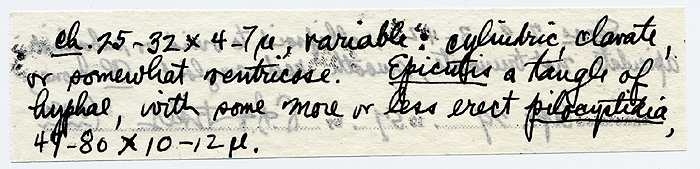 ch. 25-32 x 4-7µ, variable: cylindric, clavate,
or somewhat ventricose. Epicutis a tangle of
hyphae, with some more or less erect pilocystidia,
49-80 x 10-12 µ.